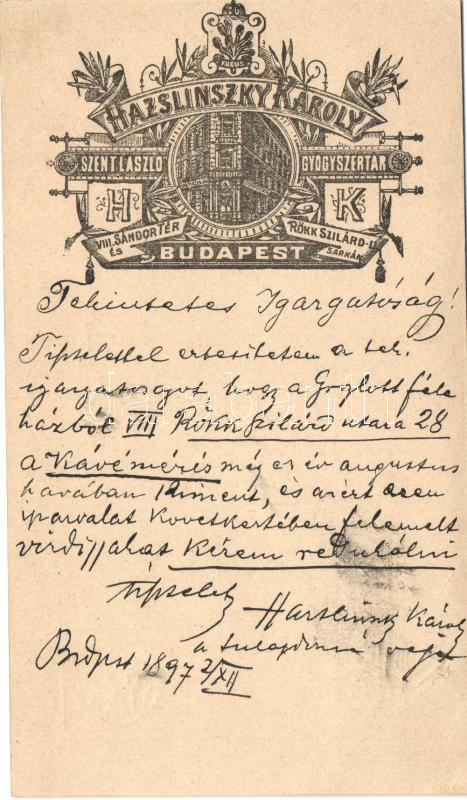 FUCUS
HAZSLINSZKY KÁROLY
SZENT LÁSZLÓ GYÓGYSZERTÁR
H K
VIII. SÁNDOR TÉR
ÉS
RÖKK SZILÁRD-U.
SARKÁN
BUDAPEST
Tekintetes Igazgatóság!
Tisztelettel értesítem a tek.
igazgatóságot, hogy a féle
házból VIII Rökk Szilárd utcza 28
a Kávémérés még ez év augustus
havában kiment, és azért ezen
iparvállalat következtében felemelt
vízdíjjakat kérem redukálni
tisztelettel
Hazslinszky Károly
a
Budpest 1897 2/XII